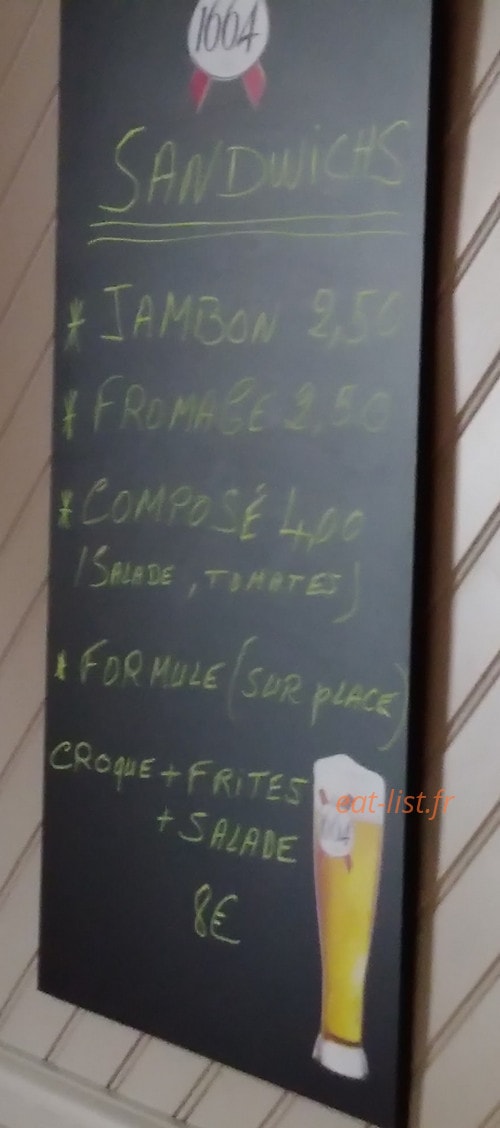 1664
SANDWICHS
* JAMBON 2,50
* FROMAGE 2,50
* COMPOSÉ 4,00
(SALADE, TOMATES)
* FORMULE (SUR PLACE)
CROQUE + FRITES
+ SALADE
8€
eat-list.fr